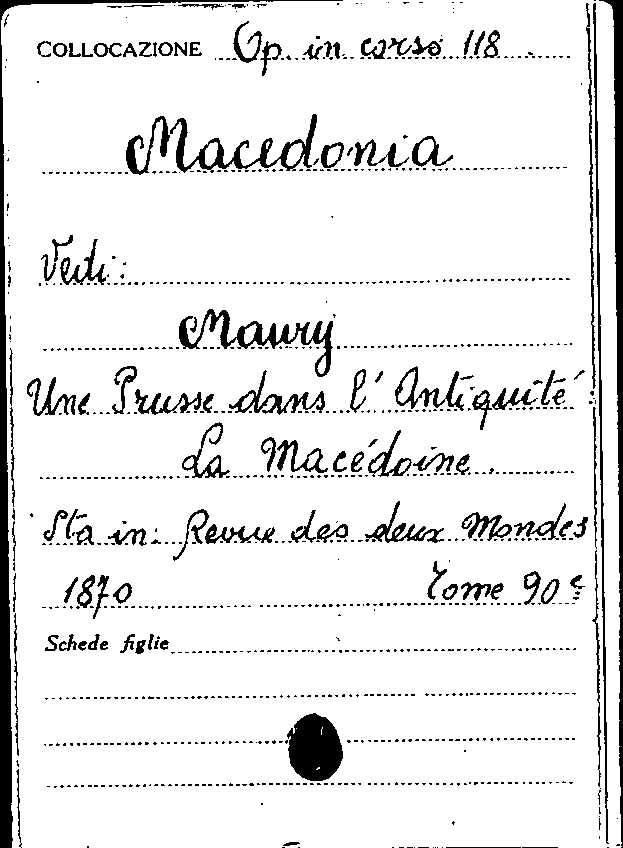 COLLOCAZIONE Op. in corso 118.
Macedonia
Vedi:
Maury
Une Prusse dans l'Antiquité:
La Macédoine.
Sta in: Revue des deux Mondes
1870 Tome 90e
Schede figlie